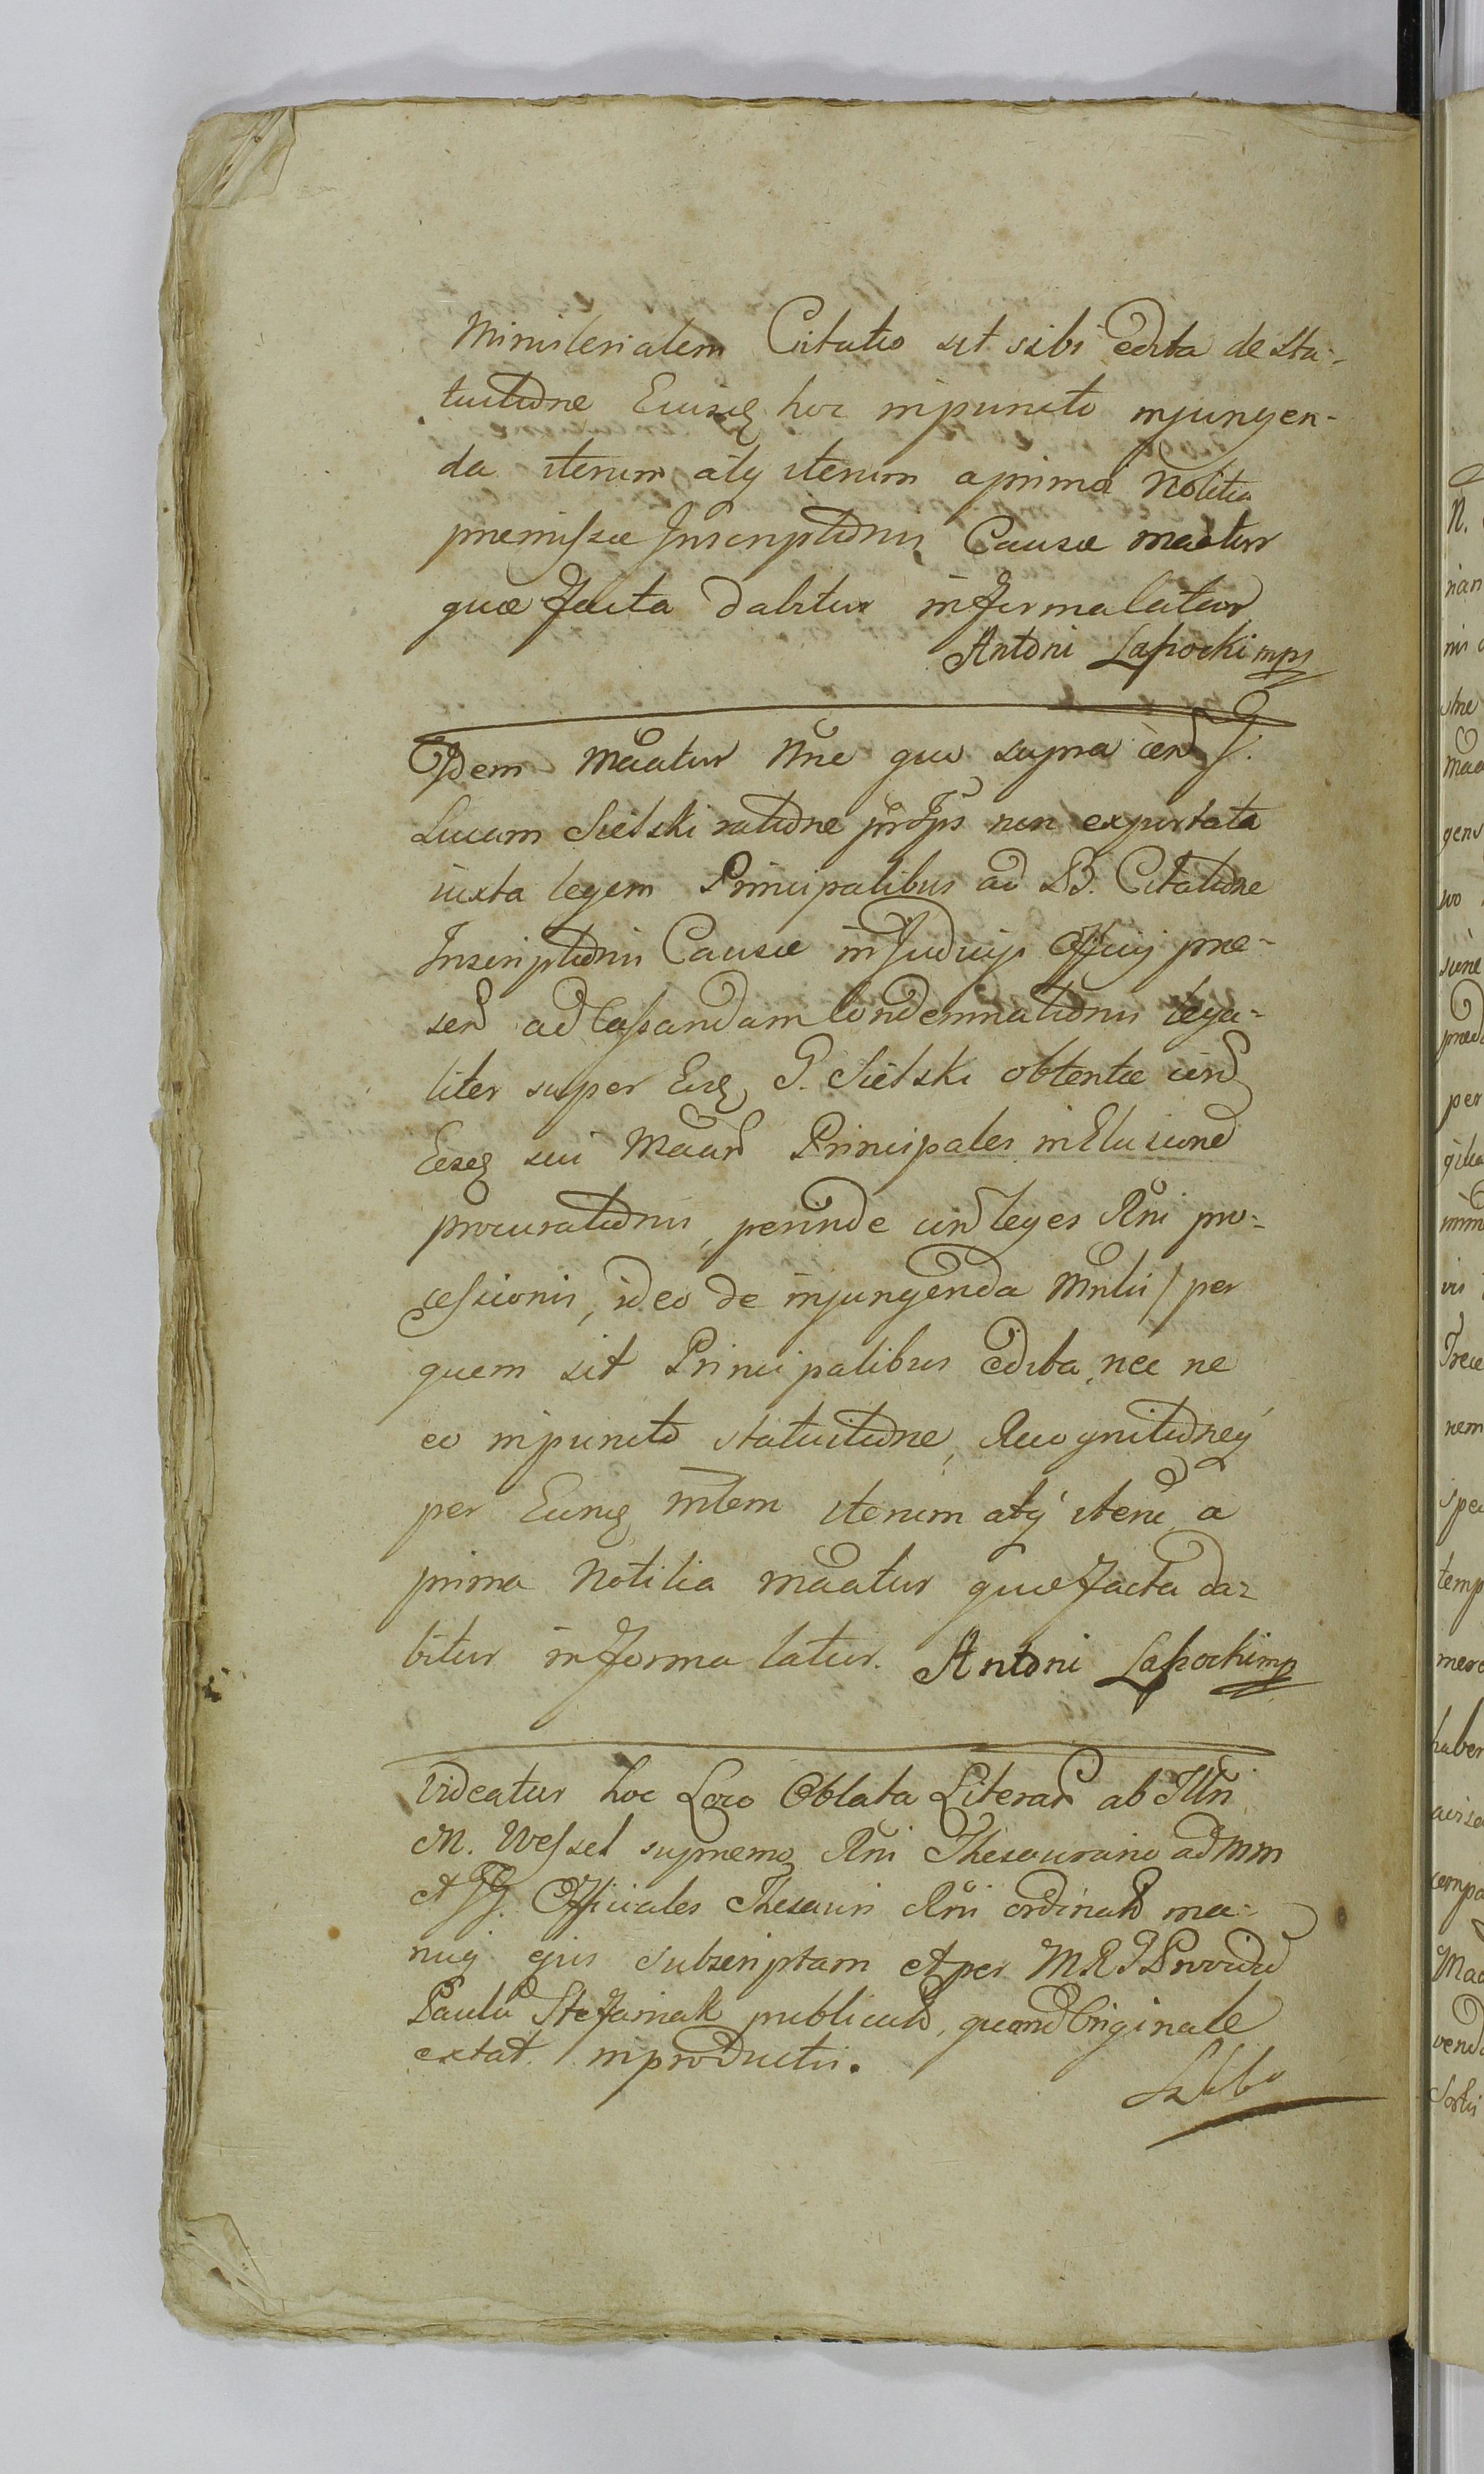 Ministerialem Citatio sit sibi edita de Sta-
tuitione Eiusq hoc inpuncto injungen-
da iterum atq iterum aprima Notitia
præmissæ Inscriptionis Causæ maatur
quæ facta dabitur informa latiur
Antoni Lassocki mps
Idem Maatur Nne quo supra cend G.
Lucam Sielski ratione non exportata
iuxta legem Principalibus ad B. Citatione
Inscriptionis Causæ inJudicijs Officij præ-
sen ad Cassandam Condemnationis lega-
liter super Eusq G. Sielski obtentæ
sui Maand Principales
procurationis, perinde leges Rni pro-
cessionis, ideo de injungenda Mnlii / per
quem sit Principalibus edita, nec ne
eo inpuncto statuitione, Recognitioneq
per Eunq mlem iterum atq iteru a
prima Notitia maatur quæ facta da-
bitur informa latiur. Antoni Lassocki mp
Videatur hoc Loco Oblata Literar ab Illri
M. Wessel supremo Rni Thesaurario ad MM
et GG. Officiales Thesauri Rni ordinat ma-
nuq ejus Subscriptam et per MRP Providu
Paulu Stefaniak publicat, quor Originale
extat inproductis.